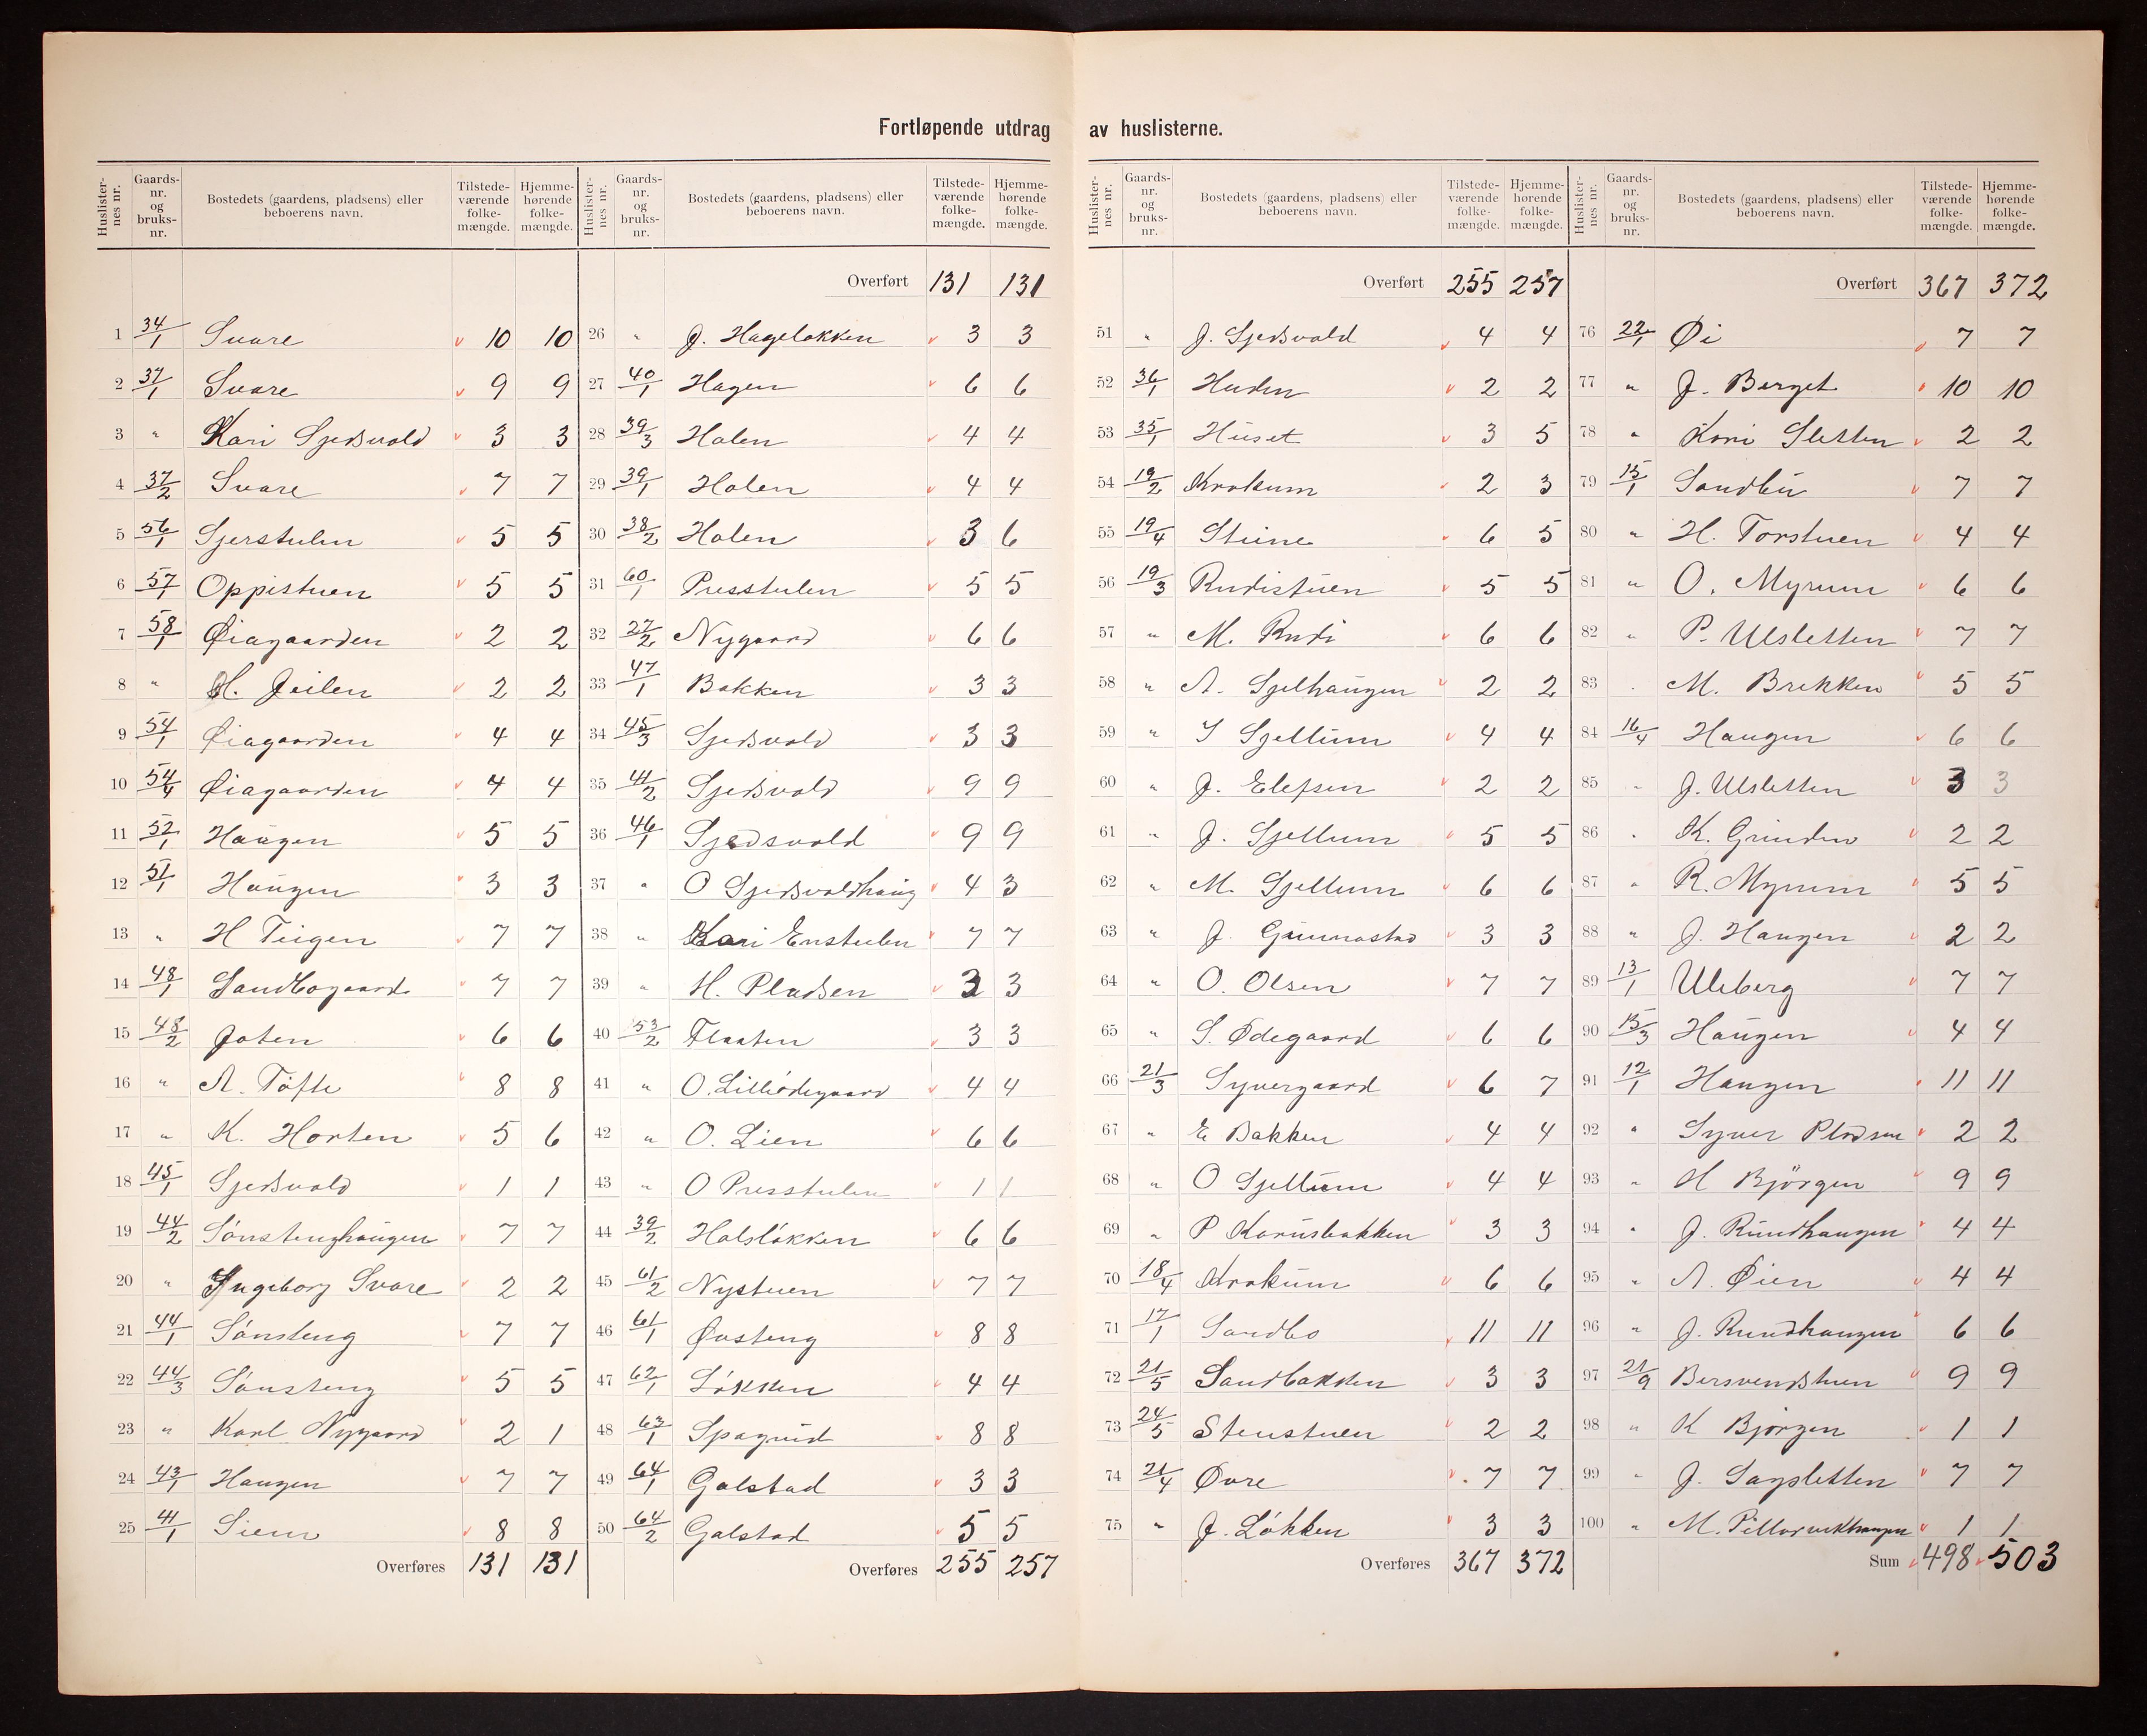 Fortløpende utdrag av huslisterne.
Huslisternes nr. Gaardsnr. og bruksnr. Bostedets (gaardens, pladsens) eller beboerens navn. Tilstedeværende folkemængde. Hjemmehørende folkemængde.
1 34/1 Svare 10 10
2 37/1 Svare 9 9
3 " Kari Sjedsvold 3 3
4 37/2 Svare 7 7
5 56/1 Sjerstulen 5 5
6 57/1 Oppistuen 5 5
7 58/1 Øiagaarden 2 2
8 " H. Jeilen 2 2
9 54/1 Øiagaarden 4 4
10 54/4 Øiagaarden 4 4
11 52/1 Haugen 5 5
12 51/1 Haugen 3 3
13 " H Teigen 7 7
14 48/1 Sandbogaard 7 7
15 48/2 Joten 6 6
16 " A. Tofte 8 8
17 " K. Horten 5 6
18 45/1 Sjedsvold 1 1
19 44/2 Sønstenghaugen 7 7
20 " Ingeborg Svare 2 2
21 44/1 Sønsteng 7 7
22 44/3 Sønsteng 5 5
23 " Karl Nygaard 2 1
24 43/1 Haugen 7 7
25 41/1 Siem 8 8
Overføres 131 131
Huslisternes nr. Gaardsnr. og bruksnr. Bostedets (gaardens, pladsens) eller beboerens navn. Tilstedeværende folkemængde. Hjemmehørende folkemængde.
Overført 131 131
26 " J. Hageløkken 3 3
27 40/1 Hagen 6 6
28 39/3 Holen 4 4
29 39/1 Holen 4 4
30 38/2 Holen 3 6
31 60/1 Presstulen 5 5
32 27/2 Nygaard 6 6
33 47/1 Bakken 3 3
34 45/3 Sjedsvold 3 3
35 41/2 Sjedsvold 9 9
36 46/1 Sjedsvold 9 9
37 " O Sjedsvoldhaug 4 3
38 " Kari Enstulen 7 7
39 " H. Pladsen 3 3
40 53/2 Flaaten 3 3
41 " O. Lilleødegaard 4 4
42 " O. Lien 6 6
43 " O Presstulen 1 1
44 39/2 Holsløkken 6 6
45 61/2 Nystuen 7 7
46 61/1 Øvsteng 8 8
47 62/1 Løkken 4 4
48 63/1 Spagrud 8 8
49 64/1 Golstad 3 3
50 64/2 Golstad 5 5
Overføres 255 257
Huslisternes nr. Gaardsnr. og bruksnr. Bostedets (gaardens, pladsens) eller beboerens navn. Tilstedeværende folkemængde. Hjemmehørende folkemængde.
Overført 255 257
51 " J. Sjedsvold 4 4
52 36/1 Huden 2 2
53 35/1 Huset 3 5
54 19/2 Krokum 2 3
55 19/4 Steine 6 5
56 19/3 Rudistuen 5 5
57 " M. Rudi 6 6
58 " A. Sjelhaugen 2 2
59 " I Sjellum 4 4
60 " J. Elefsen 2 2
61 " J. Sjellum 5 5
62 " M. Sjellum 6 6
63 " J. Gunnastad 3 3
64 " O. Olsen 7 7
65 " S. Ødegaard 6 6
66 21/3 Syvergaard 6 7
67 " E Bakken 4 4
68 " O Sjellum 4 4
69 " P Karusbakken 3 3
70 18/4 Krokum 6 6
71 17/1 Sandbo 11 11
72 21/5 Sandbakken 3 3
73 24/5 Stenstuen 2 2
74 21/4 Øvre 7 7
75 " J. Løkken 3 3
Overføres 367 372
Huslisternes nr. Gaardsnr. og bruksnr. Bostedets (gaardens, pladsens) eller beboerens navn. Tilstedeværende folkemængde. Hjemmehørende folkemængde.
Overført 367 372
76 22/1 Øi 7 7
77 " J. Berget 10 10
78 " Kari Sletten 2 2
79 15/1 Sandbu 7 7
80 " H. Torstuen 4 4
81 " O. Myrum 6 6
82 " P. Ulsletten 7 7
83 " M. Brekken 5 5
84 16/4 Haugen 6 6
85 " J. Ulsletten 3 3
86 " K. Grinden 2 2
87 " R. Myrum 5 5
88 " J. Haugen 2 2
89 13/1 Uleberg 7 7
90 15/3 Haugen 4 4
91 12/1 Haugen 11 11
92 " Syver Pladsen 2 2
93 " H Bjørgen 9 9
94 " J. Rundhaugen 4 4
95 " A. Øien 4 4
96 " J. Rundhaugen 6 6
97 21/9 Bersvendstuen 9 9
98 " K Bjørgen 1 1
99 " J. Sagsletten 7 7
100 " M. 1 1
Sum 498 503